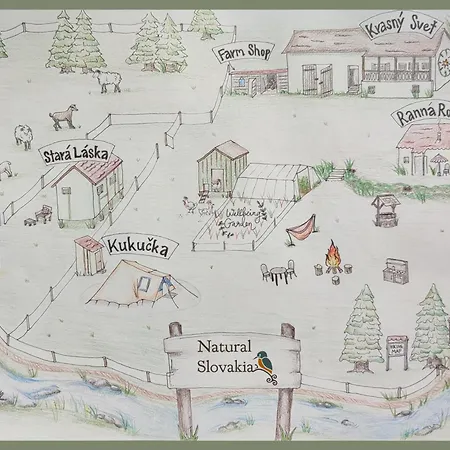 Kvasný Svet
Farm Shop
Ranná Ro
Stará Láska
Wellbeing
Garden
Kukučka
Natural
Slovakia
HIKING
MAP